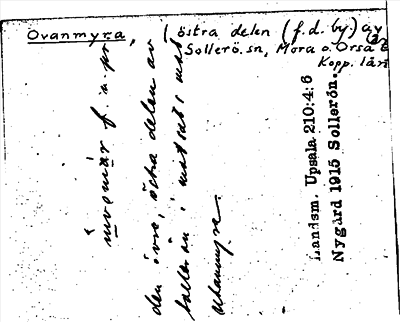 Ovanmyra, (östra delen (f.d. by) av
Sollerö sn, Mora o. Orsa
Kopp. län
f. n. pr
den övre, östra delen av
i motsats mot
Utanmyra.
Landsm. Upsala 210:4:6
Nygård 1915 Sollerön.